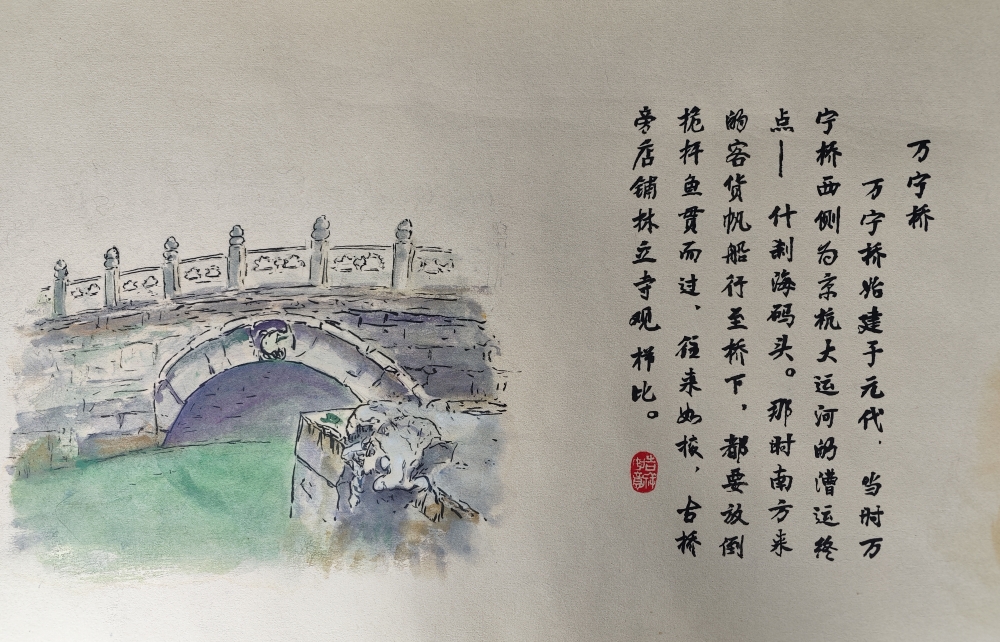 万宁桥
万宁桥始建于元代，当时万
宁桥西侧为京杭大运河的漕运终
点—什刹海码头。那时南方来
的客货帆船行至桥下，都要放倒
桅杆鱼贯而过，往来如梭，古桥
旁店铺林立寺观栉比。
吉祥如意